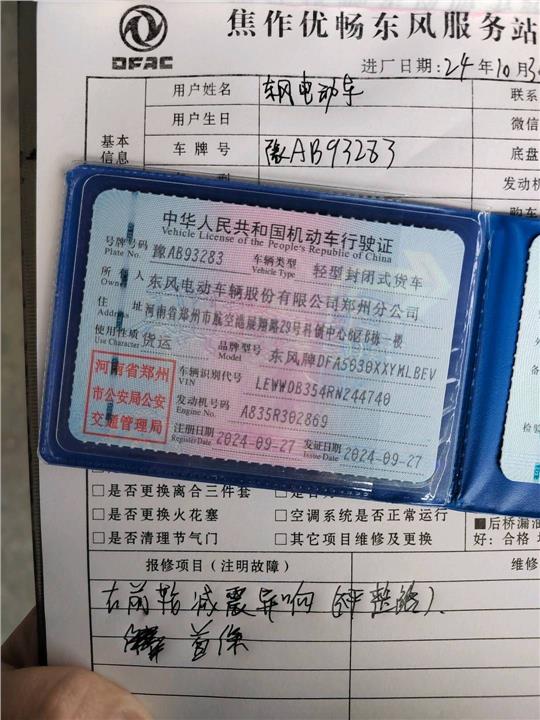 DFAC
焦作优畅东风服务站
进厂日期:24年10月3
用户姓名 东风电动车 联系
用户生日 微信
基本信息
车牌号 豫AB93283 底盘
型 发动机
购车
中华人民共和国机动车行驶证
Vehicle License of the People's Republic of China
号牌号码 豫AB93283 车辆类型 轻型封闭式货车
Plate No. Vehicle Type
所有人 东风电动车辆股份有限公司郑州分公司
Owner
住址 河南省郑州市航空港展翔路29号科创中心6区6栋一楼
Address
使用性质 货运 品牌型号 东风牌DFA5030XXYMLBEV
Use Character Model
河南省郑州市公安局公安交通管理局
车辆识别代号 LEWWDB354RN244740
VIN
发动机号码 A835R302869
Engine No.
注册日期 2024-09-27 发证日期 2024-09-27
Register Date Issue Date
检验
□是否更换离合三件套
□是否更换火花塞 □空调系统是否正常运行 ■后桥漏油
□是否清理节气门 □其它项目维修及更换 好:合格
报修项目(注明故障) 维修
右前轮减震异响
首保